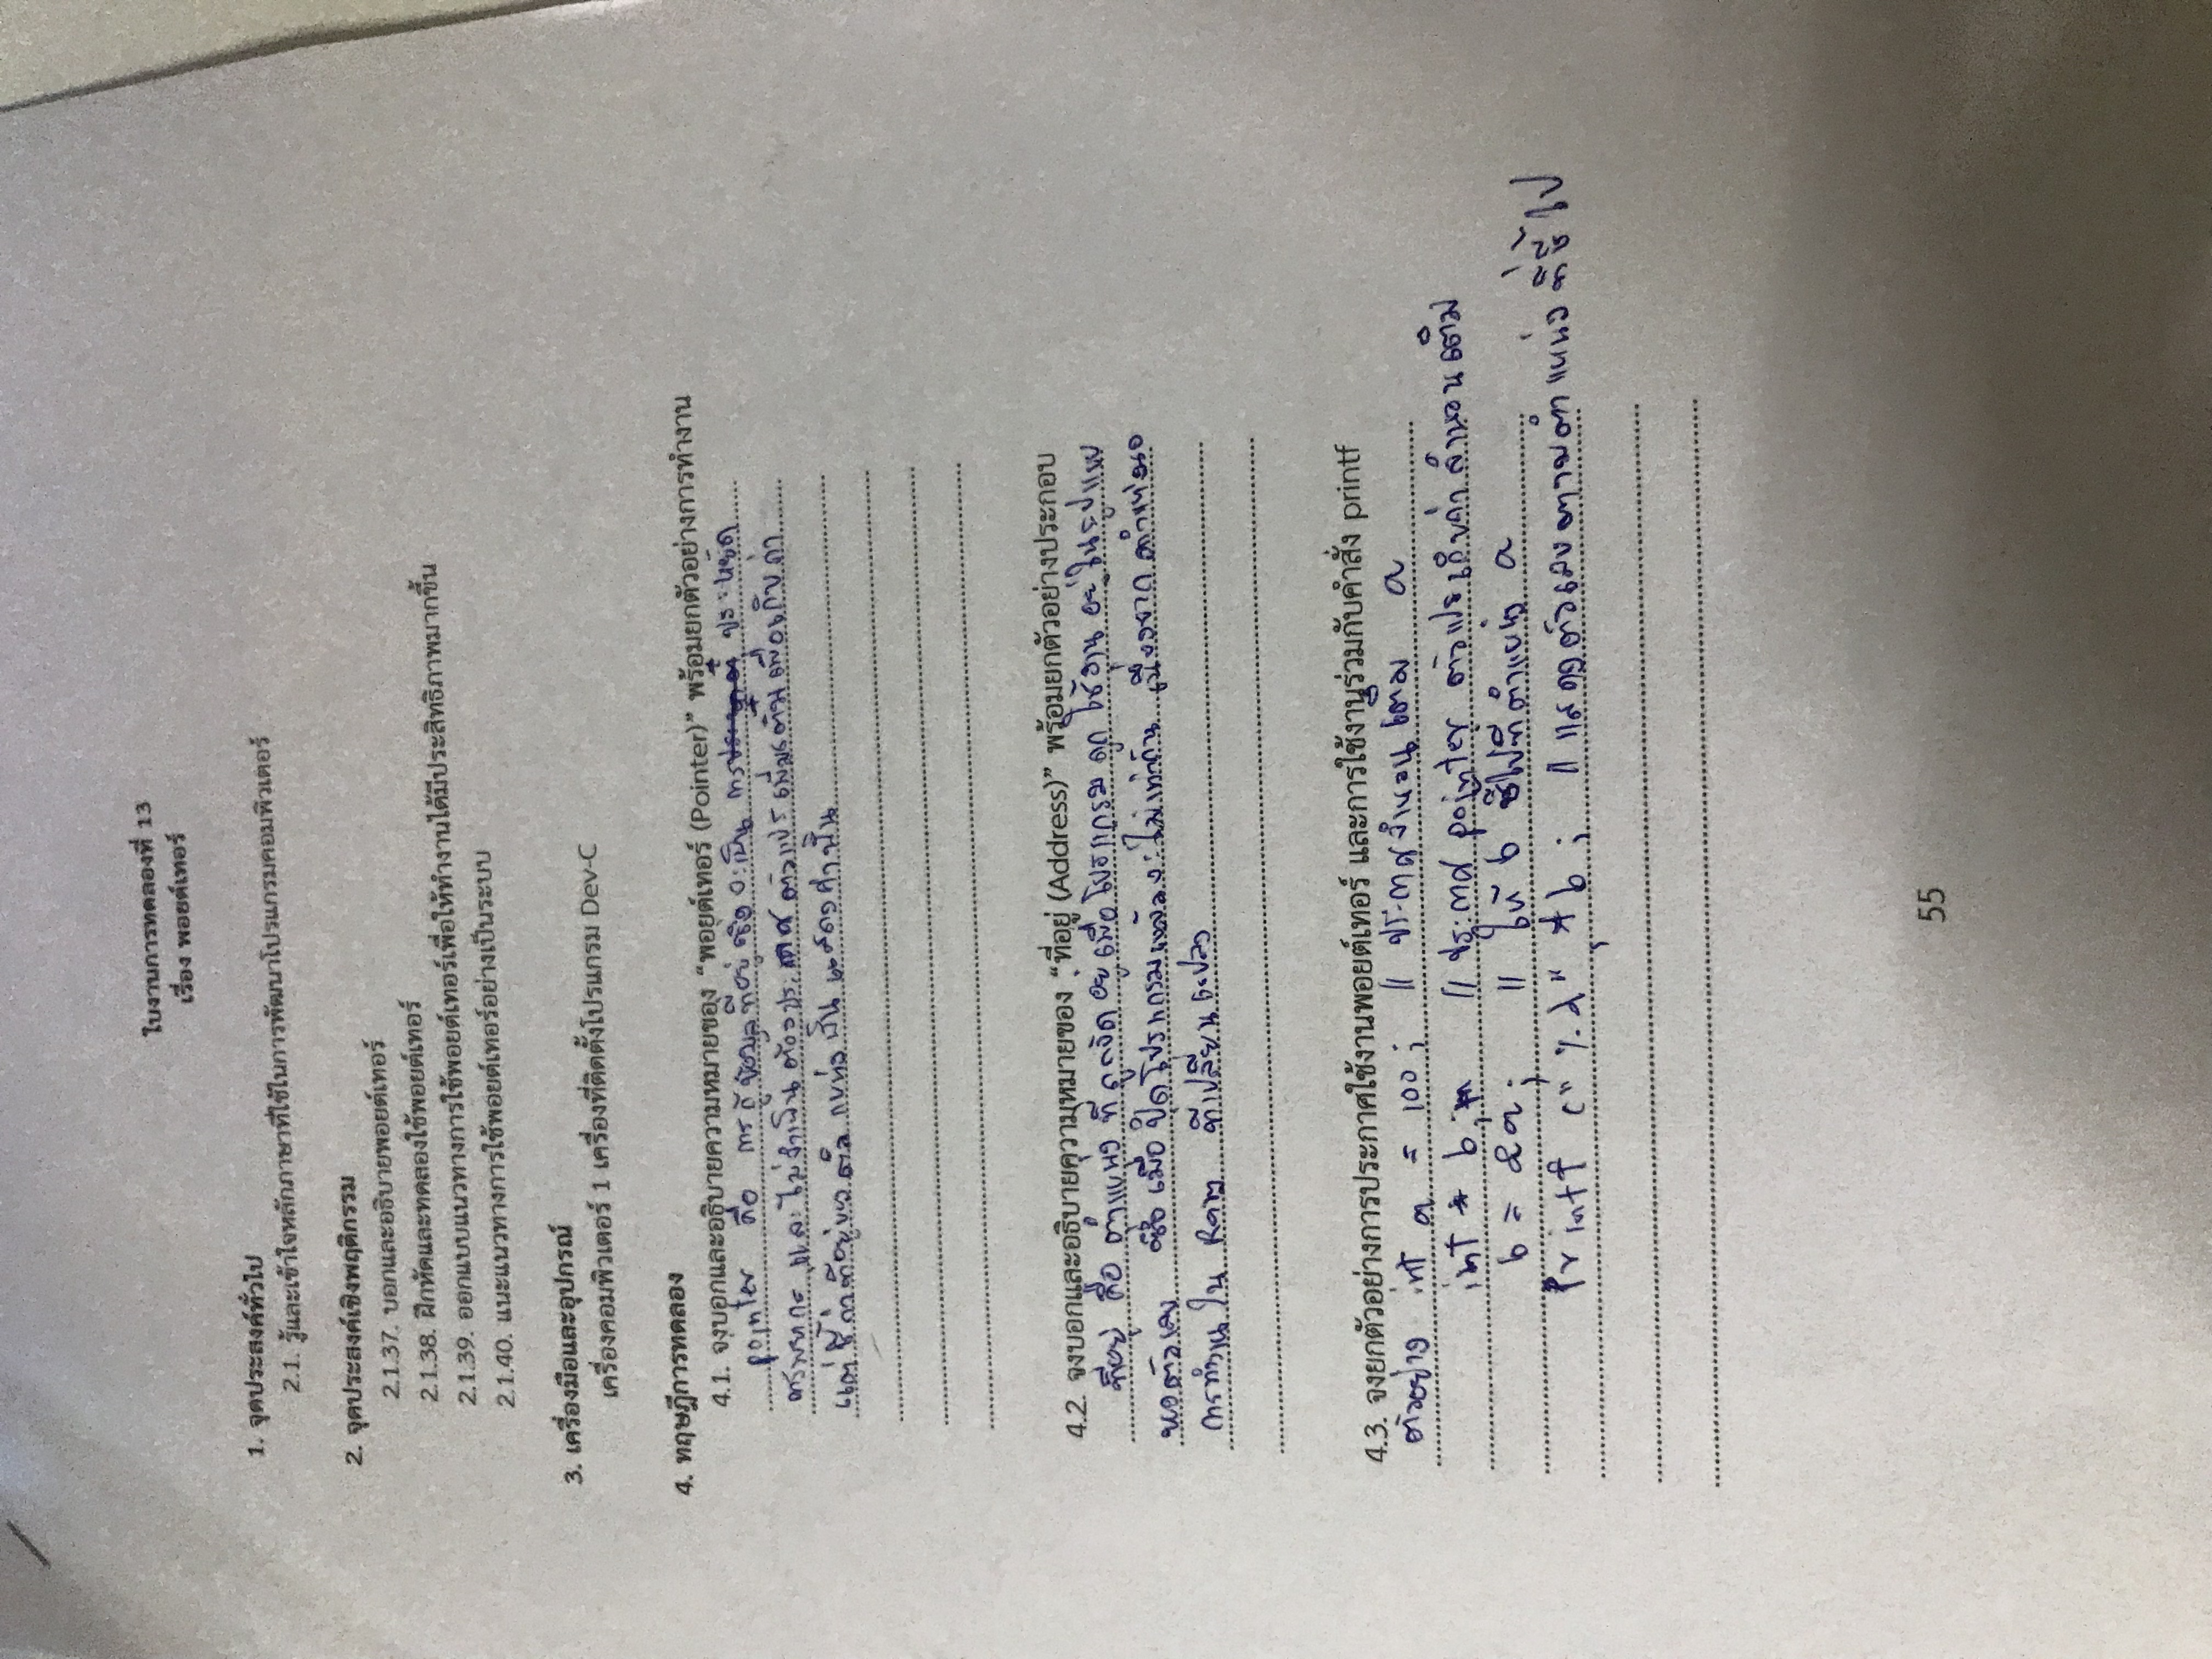 ใบงานการทดลองที่ 13
เรื่อง พอยต์เทอร์
1. จุดประสงค์ทั่วไป
2.1. รู้และเข้าใจหลักภาษาที่ใช้ในการพัฒนาโปรแกรมคอมพิวเตอร์
2. จุดประสงค์เชิงพฤติกรรม
2.1.37. บอกและอธิบายพอยต์เทอร์
2.1.38. ฝึกหัดและทดลองใช้พอยต์เทอร์
2.1.39. ออกแบบแนวทางการใช้พอยต์เทอร์เพื่อให้ทำงานได้มีประสิทธิภาพมากขึ้น
2.1.40. แนะแนวทางการใช้พอยต์เทอร์อย่างเป็นระบบ
3. เครื่องมือและอุปกรณ์
เครื่องคอมพิวเตอร์ 1 เครื่องที่ติดตั้งโปรแกรม Dev-C
4. ทฤษฎีการทดลอง
4.1. จงบอกและอธิบายความหมายของ “พอยต์เทอร์ (Pointer)” พร้อมยกตัวอย่างการทำงาน
pointer คือ การ ข้อมูลที่อยู่ จะเป็น การ ประหยัด
ทรัพยากร และ ไม่จำเป็น ต้องประกาศ ตัวแปร เพิ่มเติม เพื่อเก็บค่า
แต่ ชี้ ค่าที่อยู่ของ ตำแหน่ง นั้น แสดงค่านั้น
4.2. จงบอกและอธิบายความหมายของ “ที่อยู่ (Address)” พร้อมยกตัวอย่างประกอบ
ที่อยู่ คือ ตำแหน่ง ที่ถูกจัด อยู่เมื่อ โปรแกรม ถูก ใช้งาน อยู่ในรูปแบบ
ของตัวเลข ซึ่ง เมื่อ ปิดโปรแกรมแล้วจะไม่เท่ากัน เนื่องจาก ตำแหน่ง
การทำงาน ใน Ram ที่เปลี่ยนแปลง
4.3. จงยกตัวอย่างการประกาศใช้งานพอยต์เทอร์ และการใช้งานร่วมกับคำสั่ง printf
ตัวอย่าง int a = 100; // ประกาศจำนวนเต็ม a
int * b; // ประกาศ pointer ตัวแปรเก็บค่า จำนวนเต็ม
b = &a; // ให้ b ชี้ไปที่ตำแหน่ง a
Printf ("%d", *b; // แสดงตัวเลขตามตำแหน่งที่ชี้ไป
55